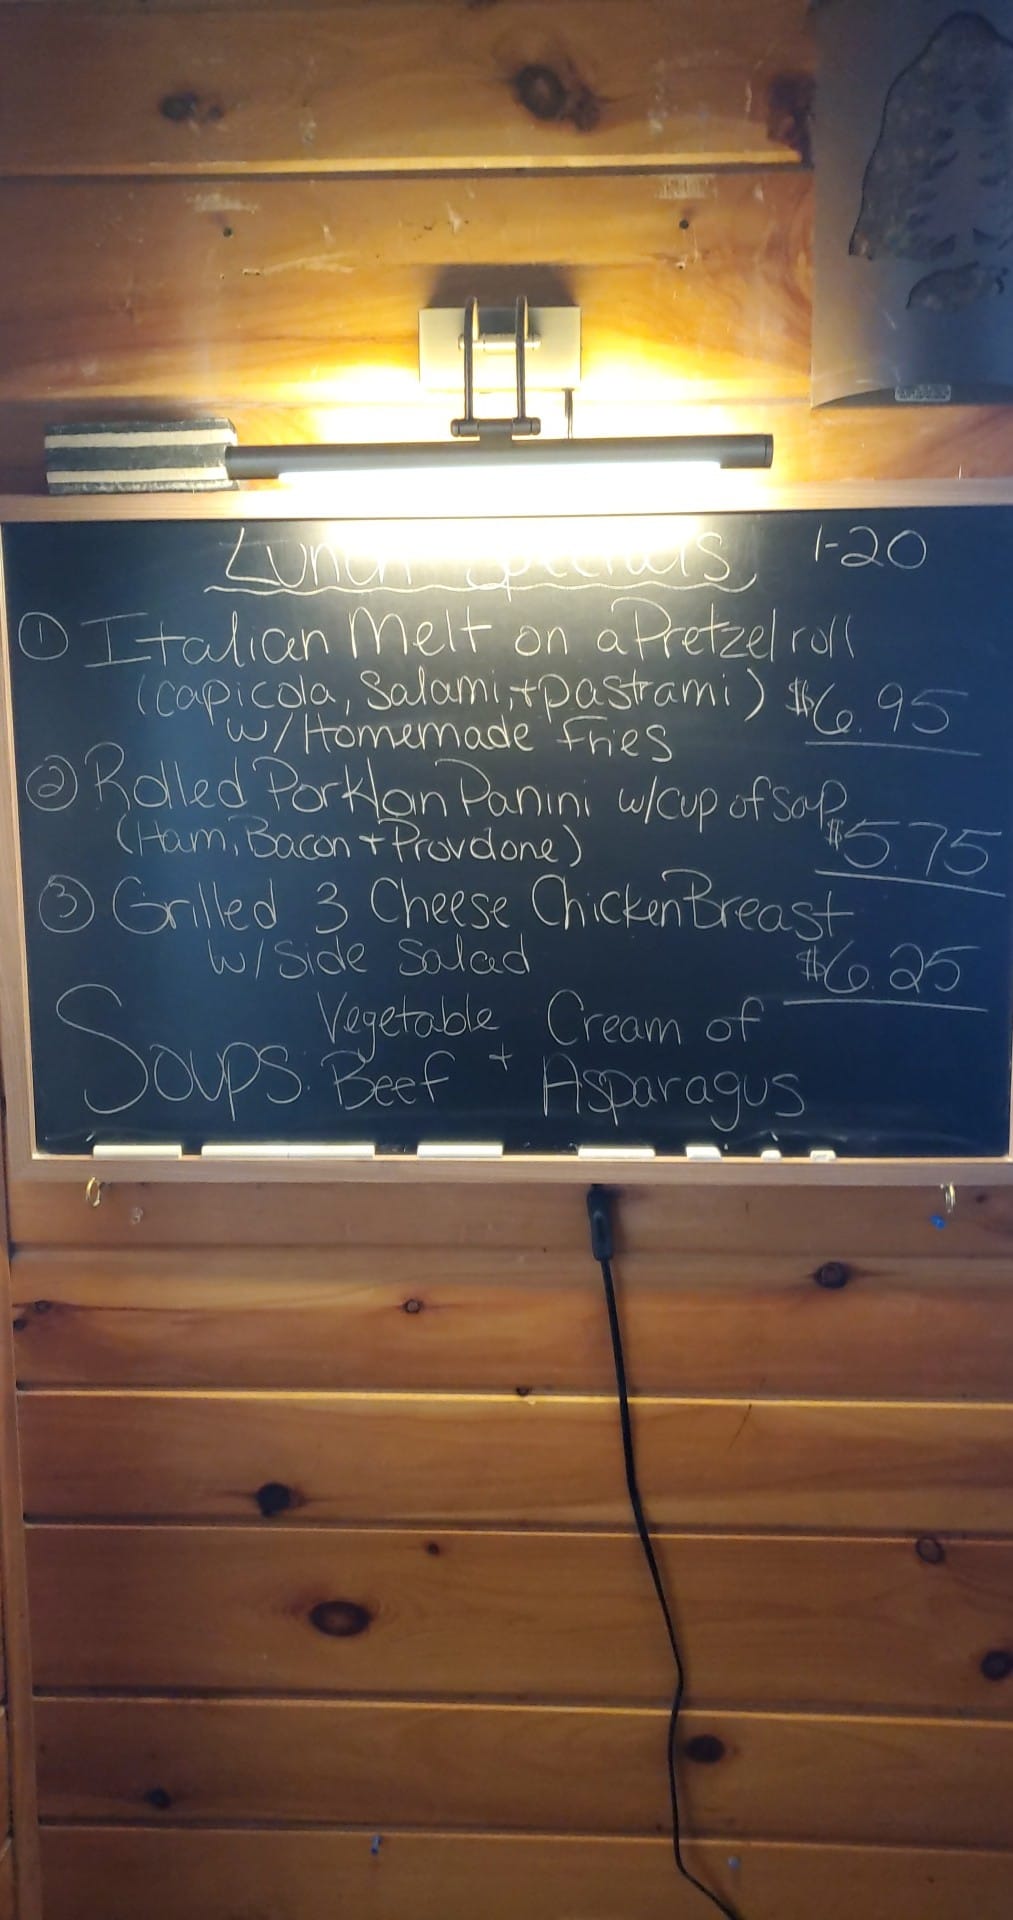 Lunch Specials 1-20
① Italian Melt on a Pretzel roll
(capicola, Salami, + pastrami) $6.95
w/ Homemade Fries
② Rolled Porkloin Panini w/cup of soup
(Ham, Bacon + Provolone) $5.75
③ Grilled 3 Cheese Chicken Breast
w/ side salad $6.25
Soups: Vegetable Beef + Cream of Asparagus